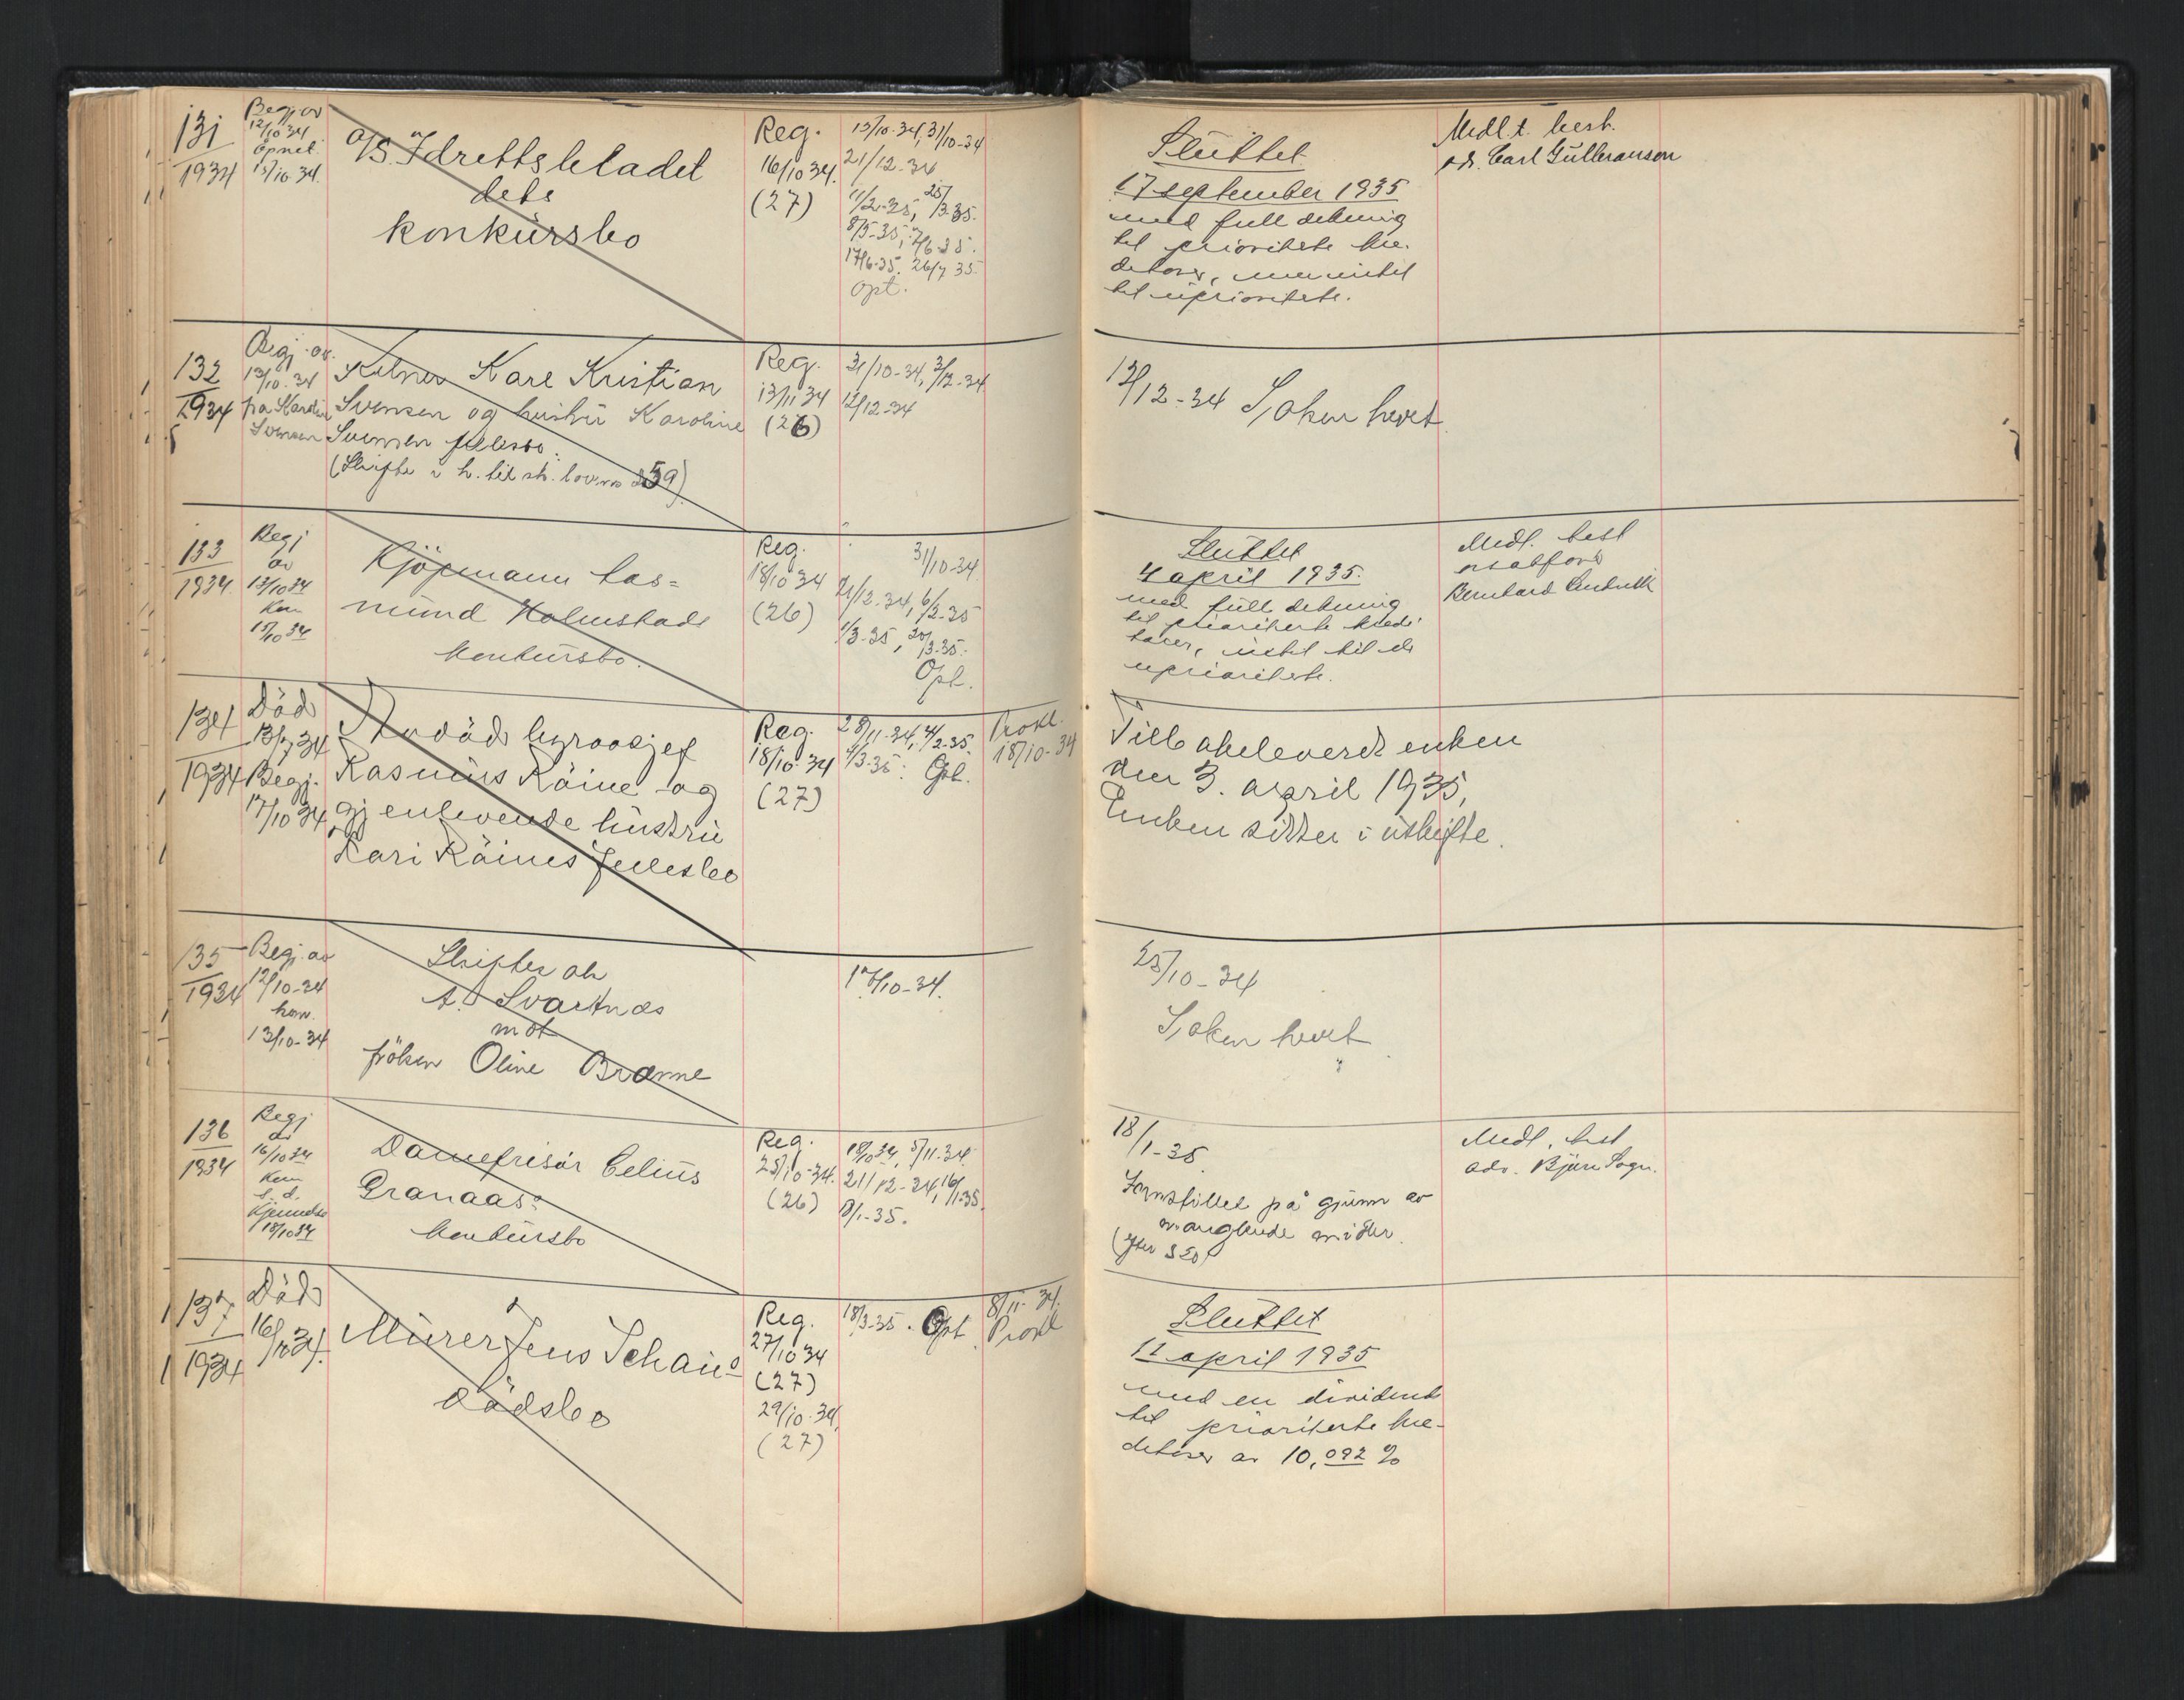 131
1934
Begj. av
12/10 34
åpnet
15/10 34.
A/S. Idrettsbladet
dets
konkursbo
Reg.
16/10 34.
(27)
15/10-34, 31/10-34
21/12-34
11/2-35, 25/3-35.
8/5-35, 7/6-35.
17/6-35. 26/7 35.
Opt.
Sluttet
17 september 1935
med full dekning
til prioriterte kre-
ditorer, men intet
til uprioriterte.
Midl. t. best.
adv. Carl Gulbranson
132
1934
Begj. av.
13/10-34
fra Karoline
Svensen
Kelner Karl Kristian
Svensen og hustru Karoline
Svensen fellesbo.
(Skifte i h. til sk. lovens § 59)
Reg.
13/11 34
(26)
31/10-34, 3/12-34
12/12-34
12/12-34 Saken hevet
133
1934
Begj
av
13/10 34
Ken
15/10 34
Kjöpmann
mund Holmstads
konkursbo.
Reg.
18/10 34
(26)
31/10-34.
21/12-34, 6/2-35
1/3-35, 20/3-35.
Opt.
Sluttet
4 april 1935.
med full dekning
til prioriterte kredi-
torer, intet til de
uprioriterte.
Midl. best
Bernhard
134
1934
Död
13/7 34
Begj.
17/10 34
Avdöd byråsjef
Rasmus Räine og
gjenlevende hustru
Kari Räines fellesbo
Reg.
18/10-34
(27)
28/11-34, 4/2-35.
4/3-35. Opt.
Prokl.
18/10-34
Tilbakeleverdt enken
den 3. april 1935,
Enken sitter i uskifte.
135
1934
Begj. av
12/10-34
kom.
13/10-34
Skifter ak
A. Svartnes
mot
fröken Oline Brænne
17/10-34.
25/10-34
Saken hevet
136
1934
Begj
av
16/10 34
Ken
s. d.
Kjennelse
18/10 34
Damefrisör Celius
Granaas:
konkursbo
Reg.
25/10-34.
(26)
18/10 34, 5/11-34.
21/12-34, 16/1-35.
18/1-35.
18/1-35.
Innstillet på grunn av
manglende midler.
(efter § 50)
Midl. best
adv. Björn Sogn.
137
1934
Död
16/10 34.
Murer Jens Schaus
dödsbo
Reg.
27/10 34
(27)
29/10-34
(27)
18/3-35. Opt.
8/11-34.
Prokl
Sluttet
11 april 1935
med en dividende
til prioriterte kre-
ditorer av 10,092 %